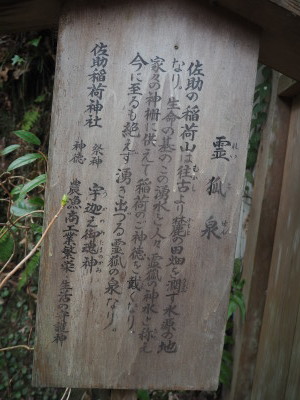 霊狐泉
佐助の稲荷山は往古より麓の田畑を潤す水源の地
なり。生命の基のこの湧水を人々霊狐の神水と称え
家々の神棚に供えて稲荷のご神徳を戴くなり。
今に至るも絶えず湧き出づる霊狐の泉なり。
佐助稲荷神社
祭神 宇迦之御魂神
神徳 農漁商工業繁栄 生活の守護神